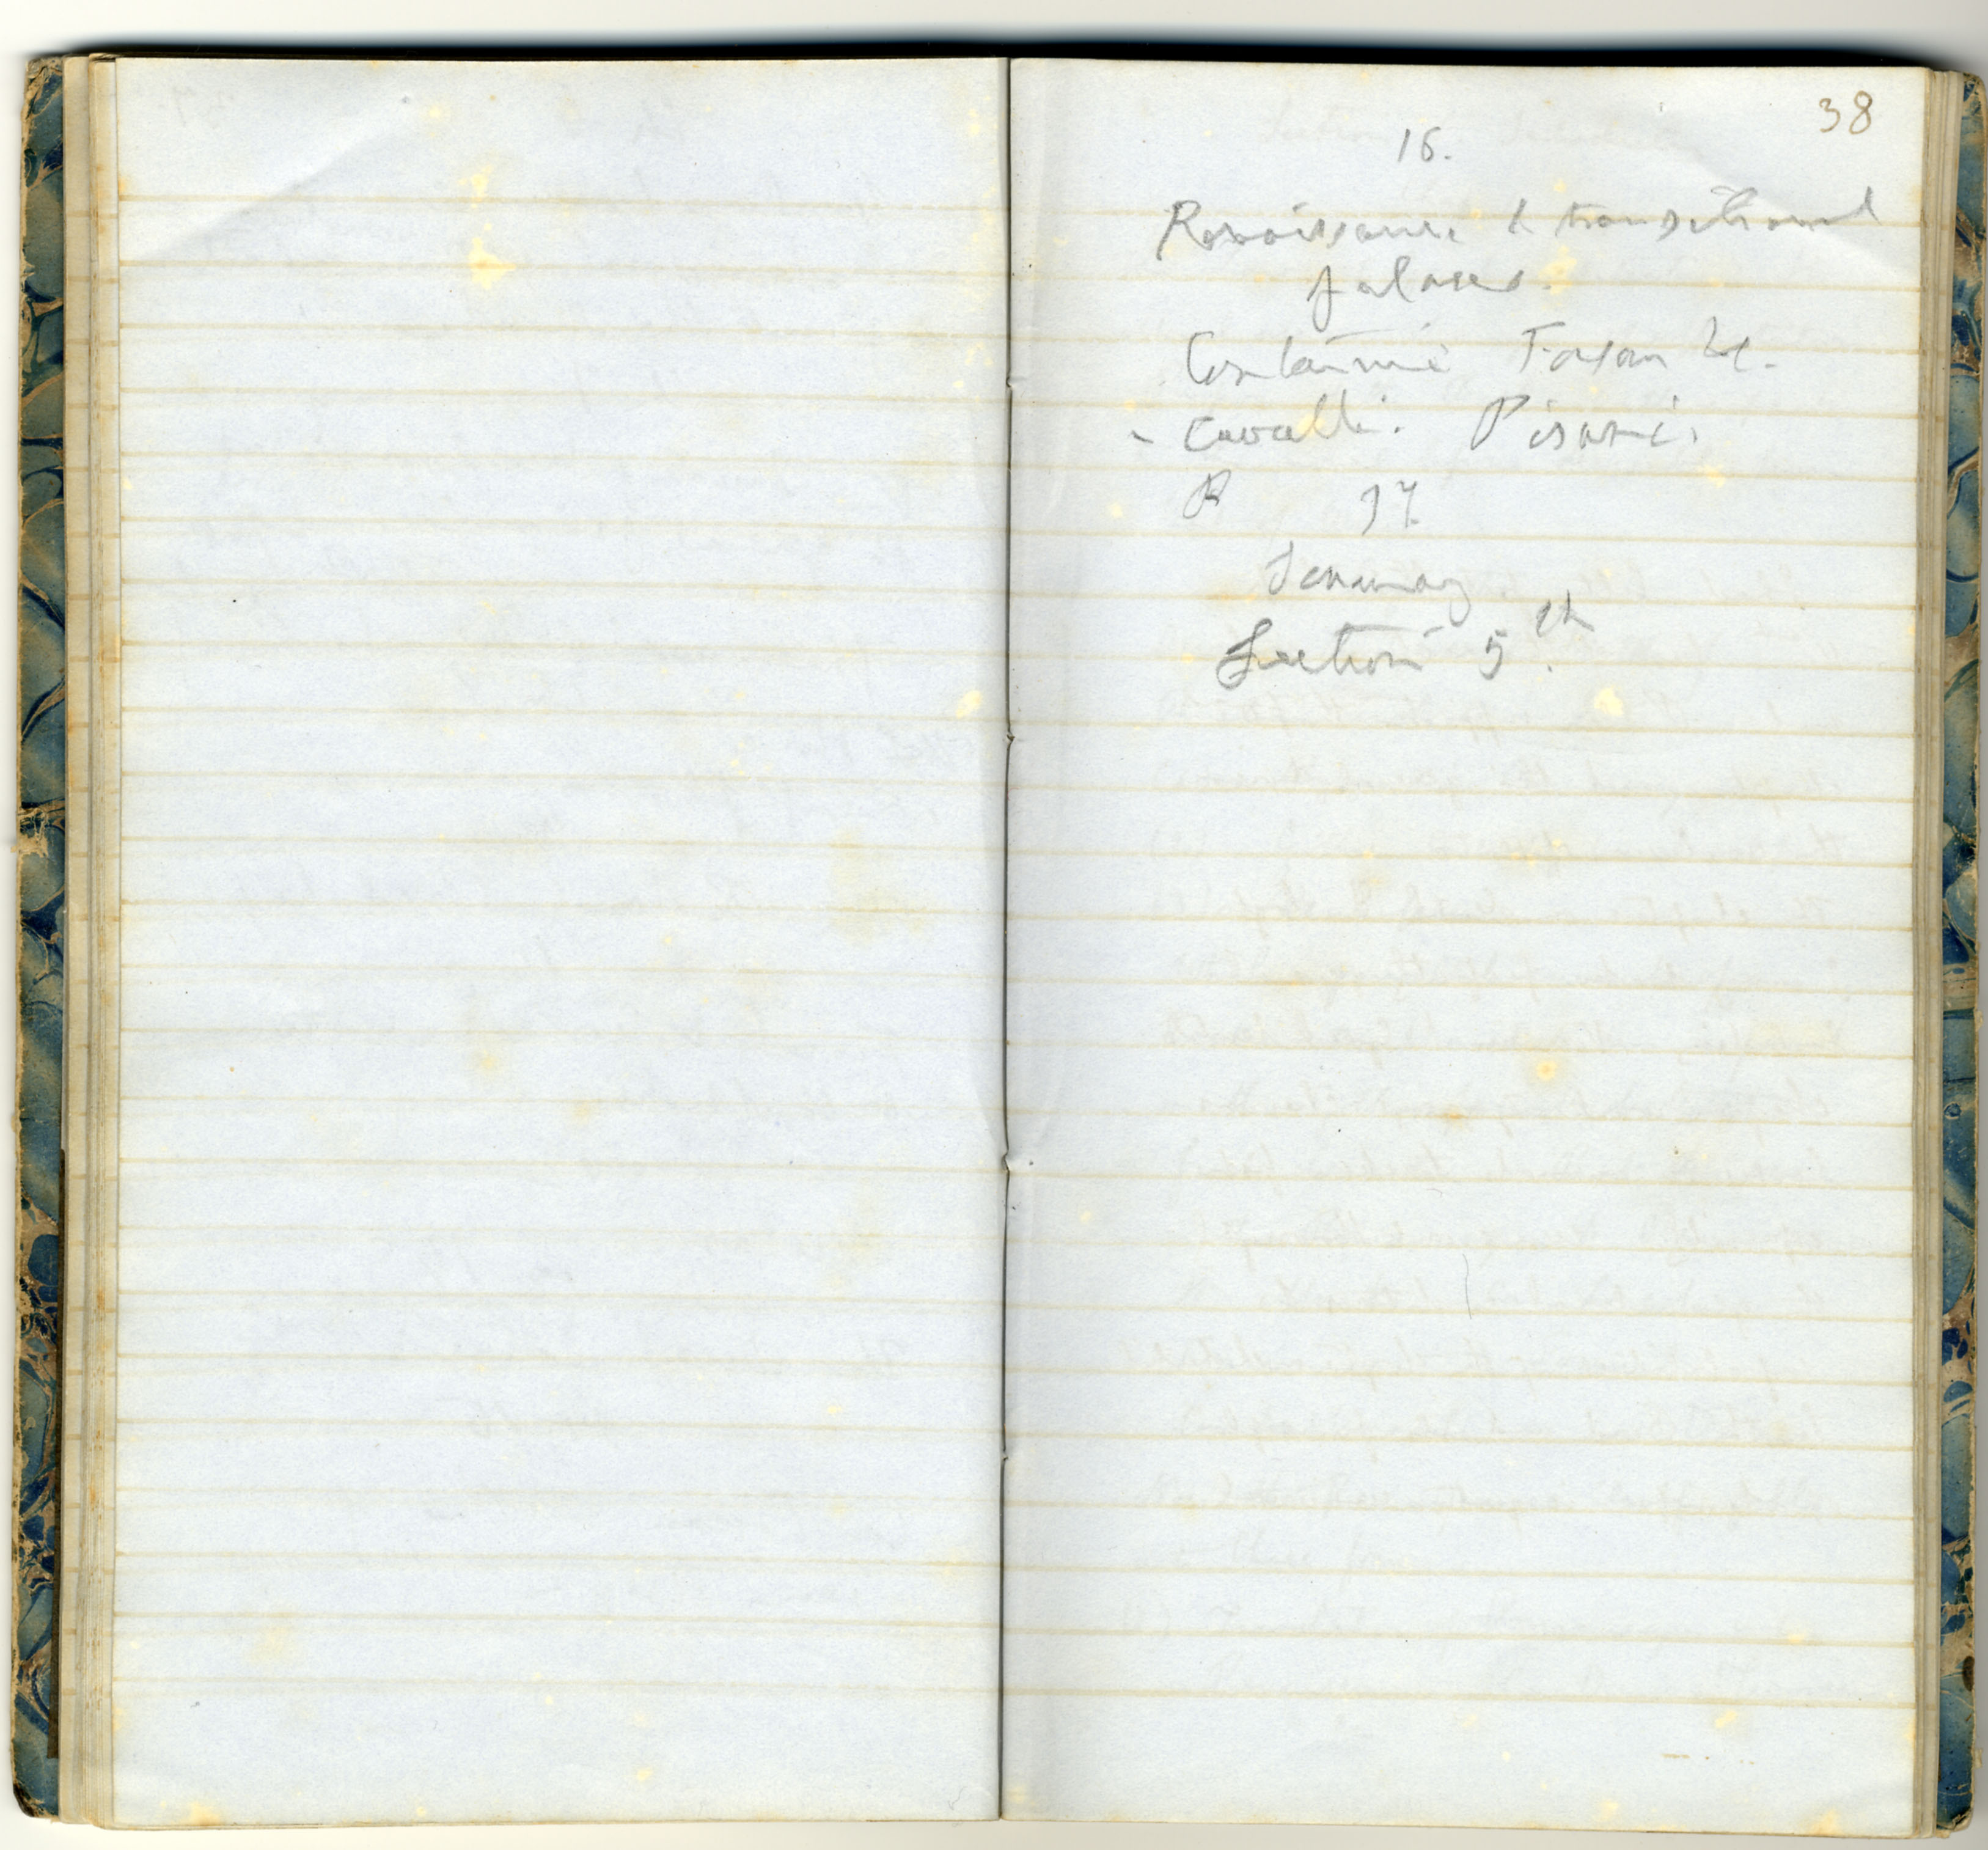 38
16.
Renaissance & transitional
palaces.
Contarini Fasan &c.
- Cavalli. Pisani.
R 17
Summary
Section 5th.